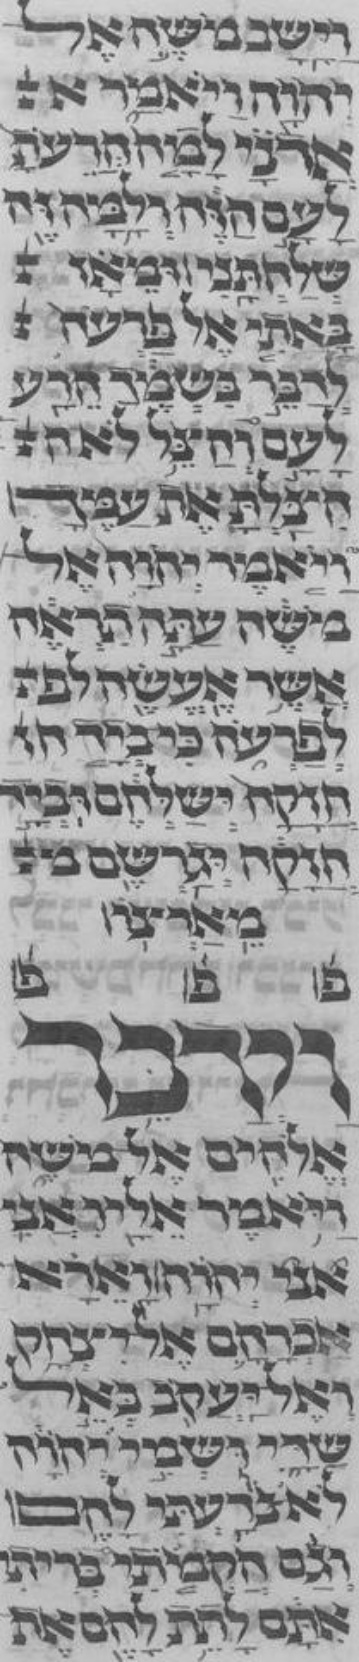 וַיָּשָׁב מֹשֶׁה אֶל
יְהוָה וַיֹּאמַר א
אֲדֹנָי לָמָה הֲרֵעֹתָ
לָעָם הַזֶּה וְלָמָּה זֶּה
שְׁלַחְתָּנִי וּמֵאָז
בָּאתִי אֶל פַּרְעֹה
לְדַבֵּר בִּשְׁמֶךָ הֵרַע
לָעָם וְהַצֵּל לֹא ה
הִצַּלְתָּ אֶת עַמֶּךָ
וַיֹּאמֶר יְהוָה אֶל
מֹשֶׁה עַתָּה תִרְאֶה
אֲשֶׁר אֶעֱשֶׂה לפר
לְפַרְעֹה כִּי בְיָד חז
חֲזָקָה יְשַׁלְּחֵם וּבְיָד
חֲזָקָה יְגָרְשֵׁם מ
מֵאַרְצוֹ
פ פ פ
וידבר
אֱלֹהִים אֶל מֹשֶׁה
וַיֹּאמֶר אֵלָיו אֲנִי
אֲנִי יְהוָה וָאֵרָא
אַבְרָהָם אֶל יִצְחָק
וְאֶל יַעֲקֹב בְּאֵל
שַׁדָּי וּשְׁמִי יְהוָה
לֹא נוֹדַעְתִּי לָהֶם
וְגַם הֲקִמֹתִי בְרִיתִי
אִתָּם לָתֵת לָהֶם אֶת